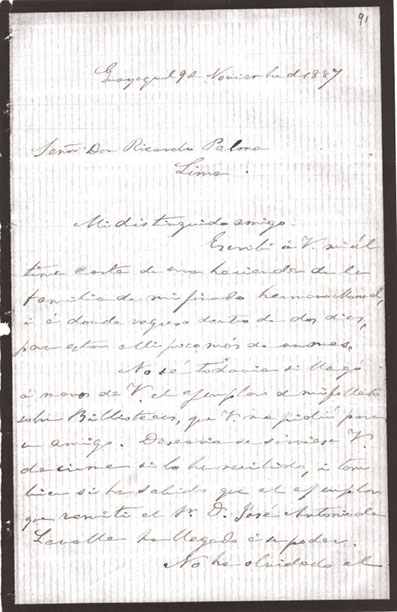 91
Guayaquil 9 de Noviembre de 1887
Señor Don Ricardo Palma
Lima.
Mi distinguido amigo.
Escribí à V. mi úl
tima carta de una hacienda de la
familia de mi finado hermano Manuel,
i à donde regreso dentro de dos dias,
para estar alli poco más de un mes.
No sé todavia si llegó
à manos de V. el ejemplar de mi folleto
sobre Bibliotecas, que V. me pidió para
un amigo. Desearia se sirviese V.
decirme si lo ha recibido, i tam
bien si ha sabido que el ejemplar
que remití al Sr. D. José Antonio de
Lavalle ha llegado à su poder.
No he olvidado el